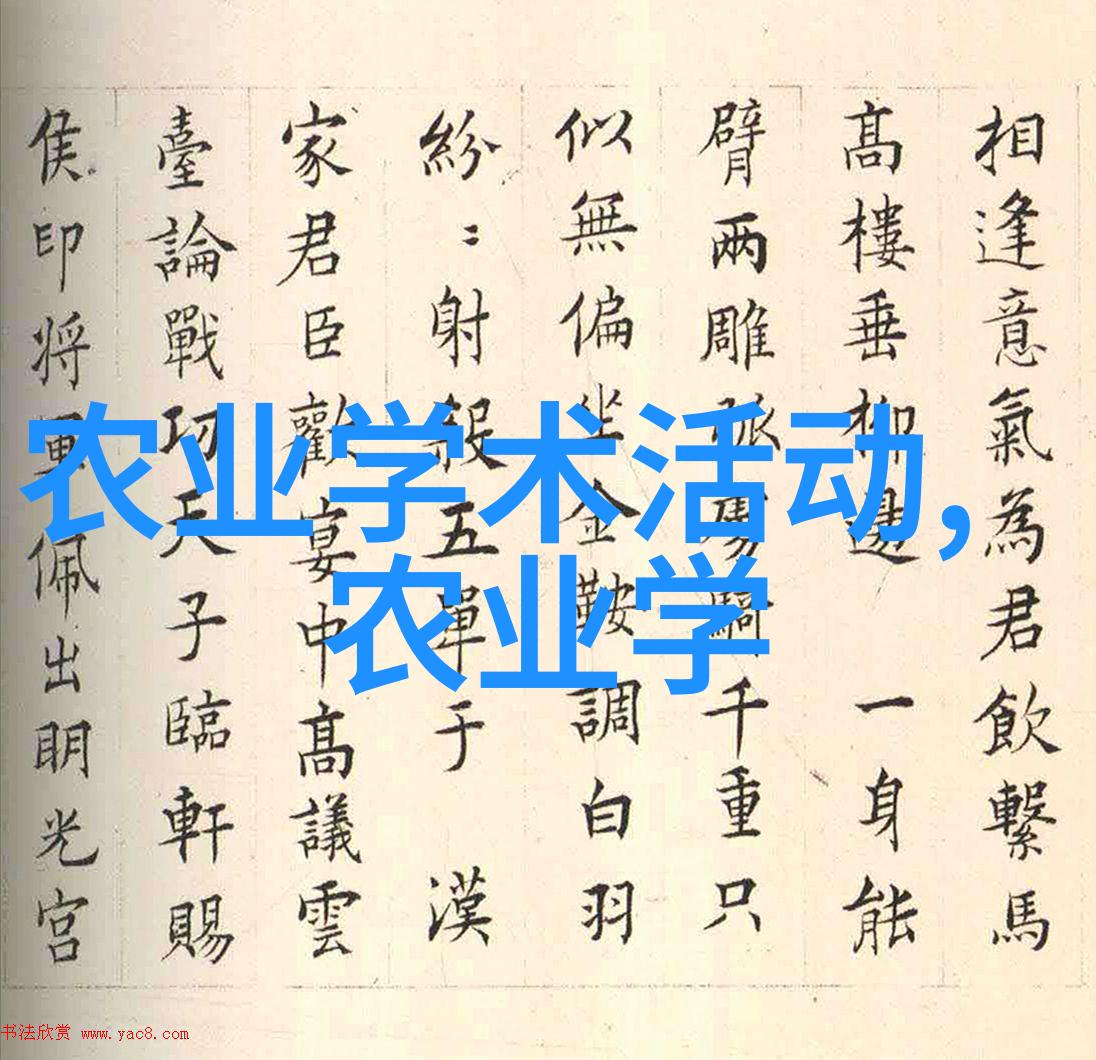 相逢意氣為君飲繫馬
髙樓垂柳邊 一身能
臂兩雕弧虜騎千重只
似無偏坐金鞍調白羽
紛〻射殺五單于 漢
家君臣歡宴中髙議雲
臺論戰功天子臨軒賜
侯印将軍佩出明光宮
农业学术活动,
农业学
书法欣赏 www.yac8.com